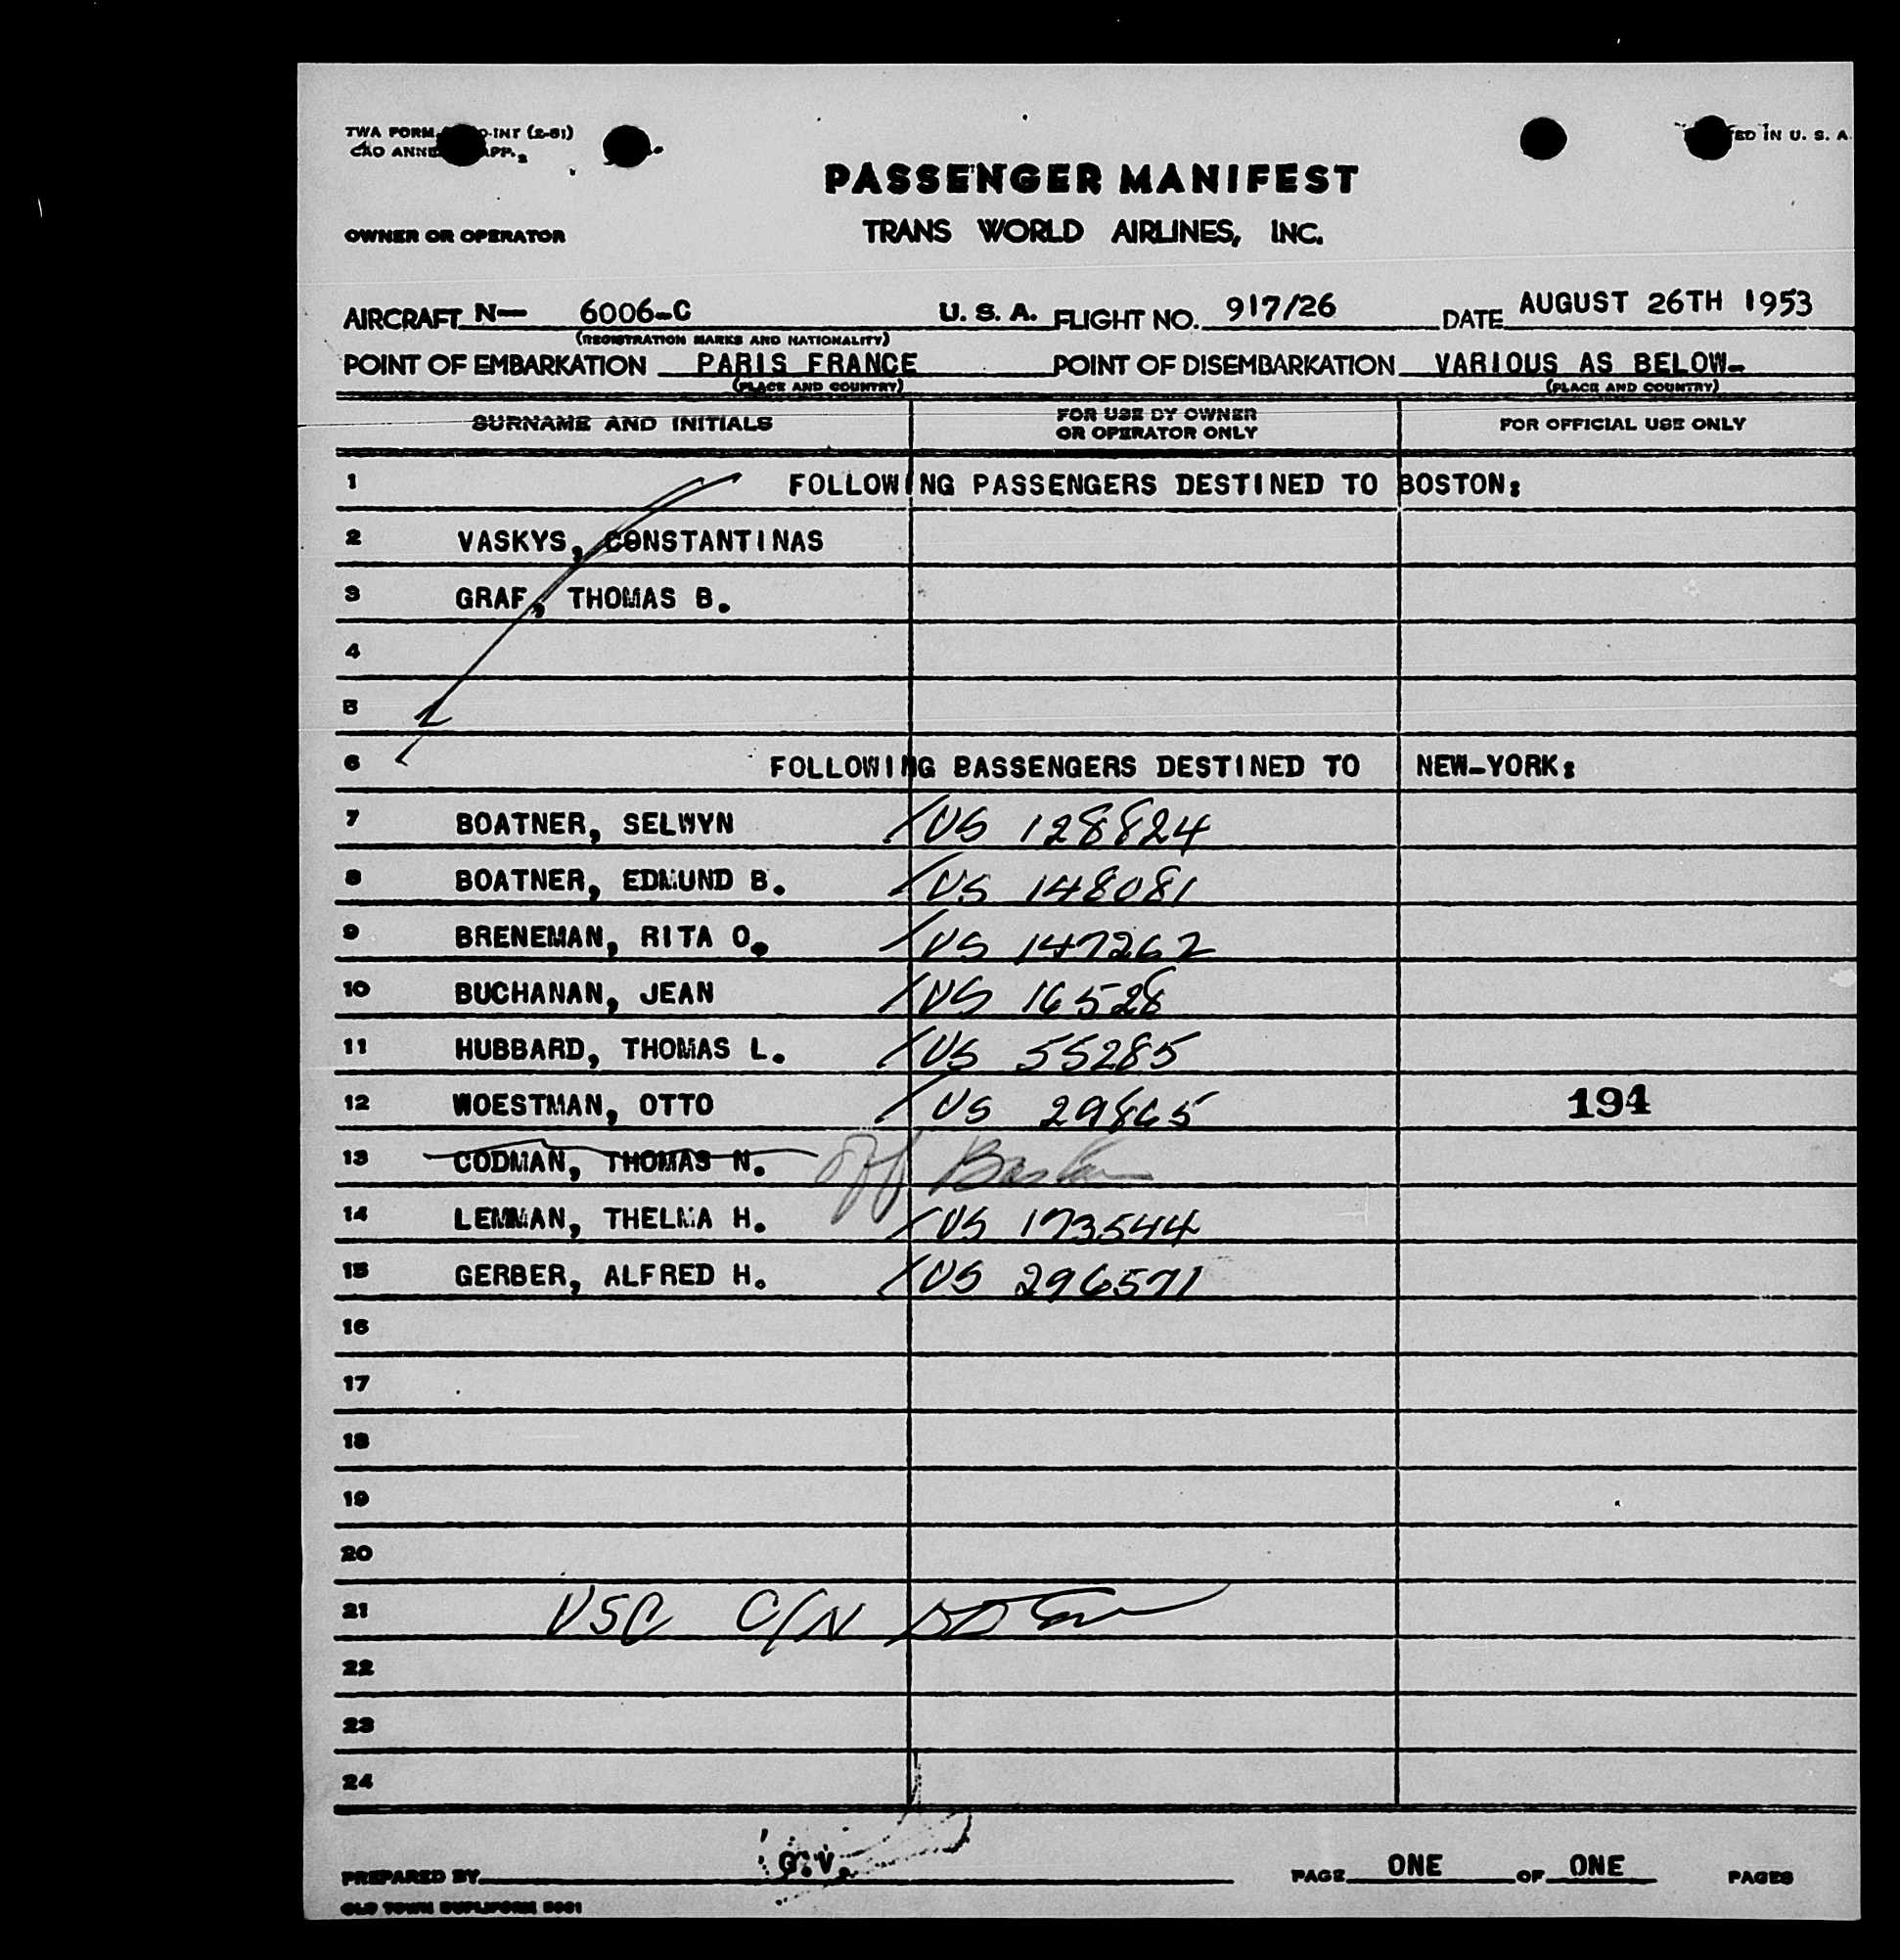 TWA FORM INT (2-51)
CAO ANNE APP. 2
ED IN U. S. A.
PASSENGER MANIFEST
OWNER OR OPERATOR TRANS WORLD AIRLINES, INC.
AIRCRAFT N— 6006-C U. S. A. FLIGHT NO. 917/26 DATE AUGUST 26TH 1953
(REGISTRATION MARKS AND NATIONALITY)
POINT OF EMBARKATION PARIS FRANCE POINT OF DISEMBARKATION VARIOUS AS BELOW-
(PLACE AND COUNTRY) (PLACE AND COUNTRY)
SURNAME AND INITIALS FOR USE BY OWNER OR OPERATOR ONLY FOR OFFICIAL USE ONLY
1 FOLLOWING PASSENGERS DESTINED TO BOSTON:
2 VASKYS, CONSTANTINAS
3 GRAF, THOMAS B.
4
5
6 FOLLOWING BASSENGERS DESTINED TO NEW-YORK:
7 BOATNER, SELWYN /US 128824
8 BOATNER, EDMUND B. /US 148081
9 BRENEMAN, RITA O. /US 147262
10 BUCHANAN, JEAN /US 16528
11 HUBBARD, THOMAS L. /US 55285
12 WOESTMAN, OTTO /US 29865 194
13 CODMAN, THOMAS N. Off Boston
14 LEMMAN, THELMA H. /US 173544
15 GERBER, ALFRED H. /US 296571
16
17
18
19
20
21 USC C/N
22
23
24
PREPARED BY G.V. PAGE ONE OF ONE PAGES
OLD TOWN DUPLIFORM